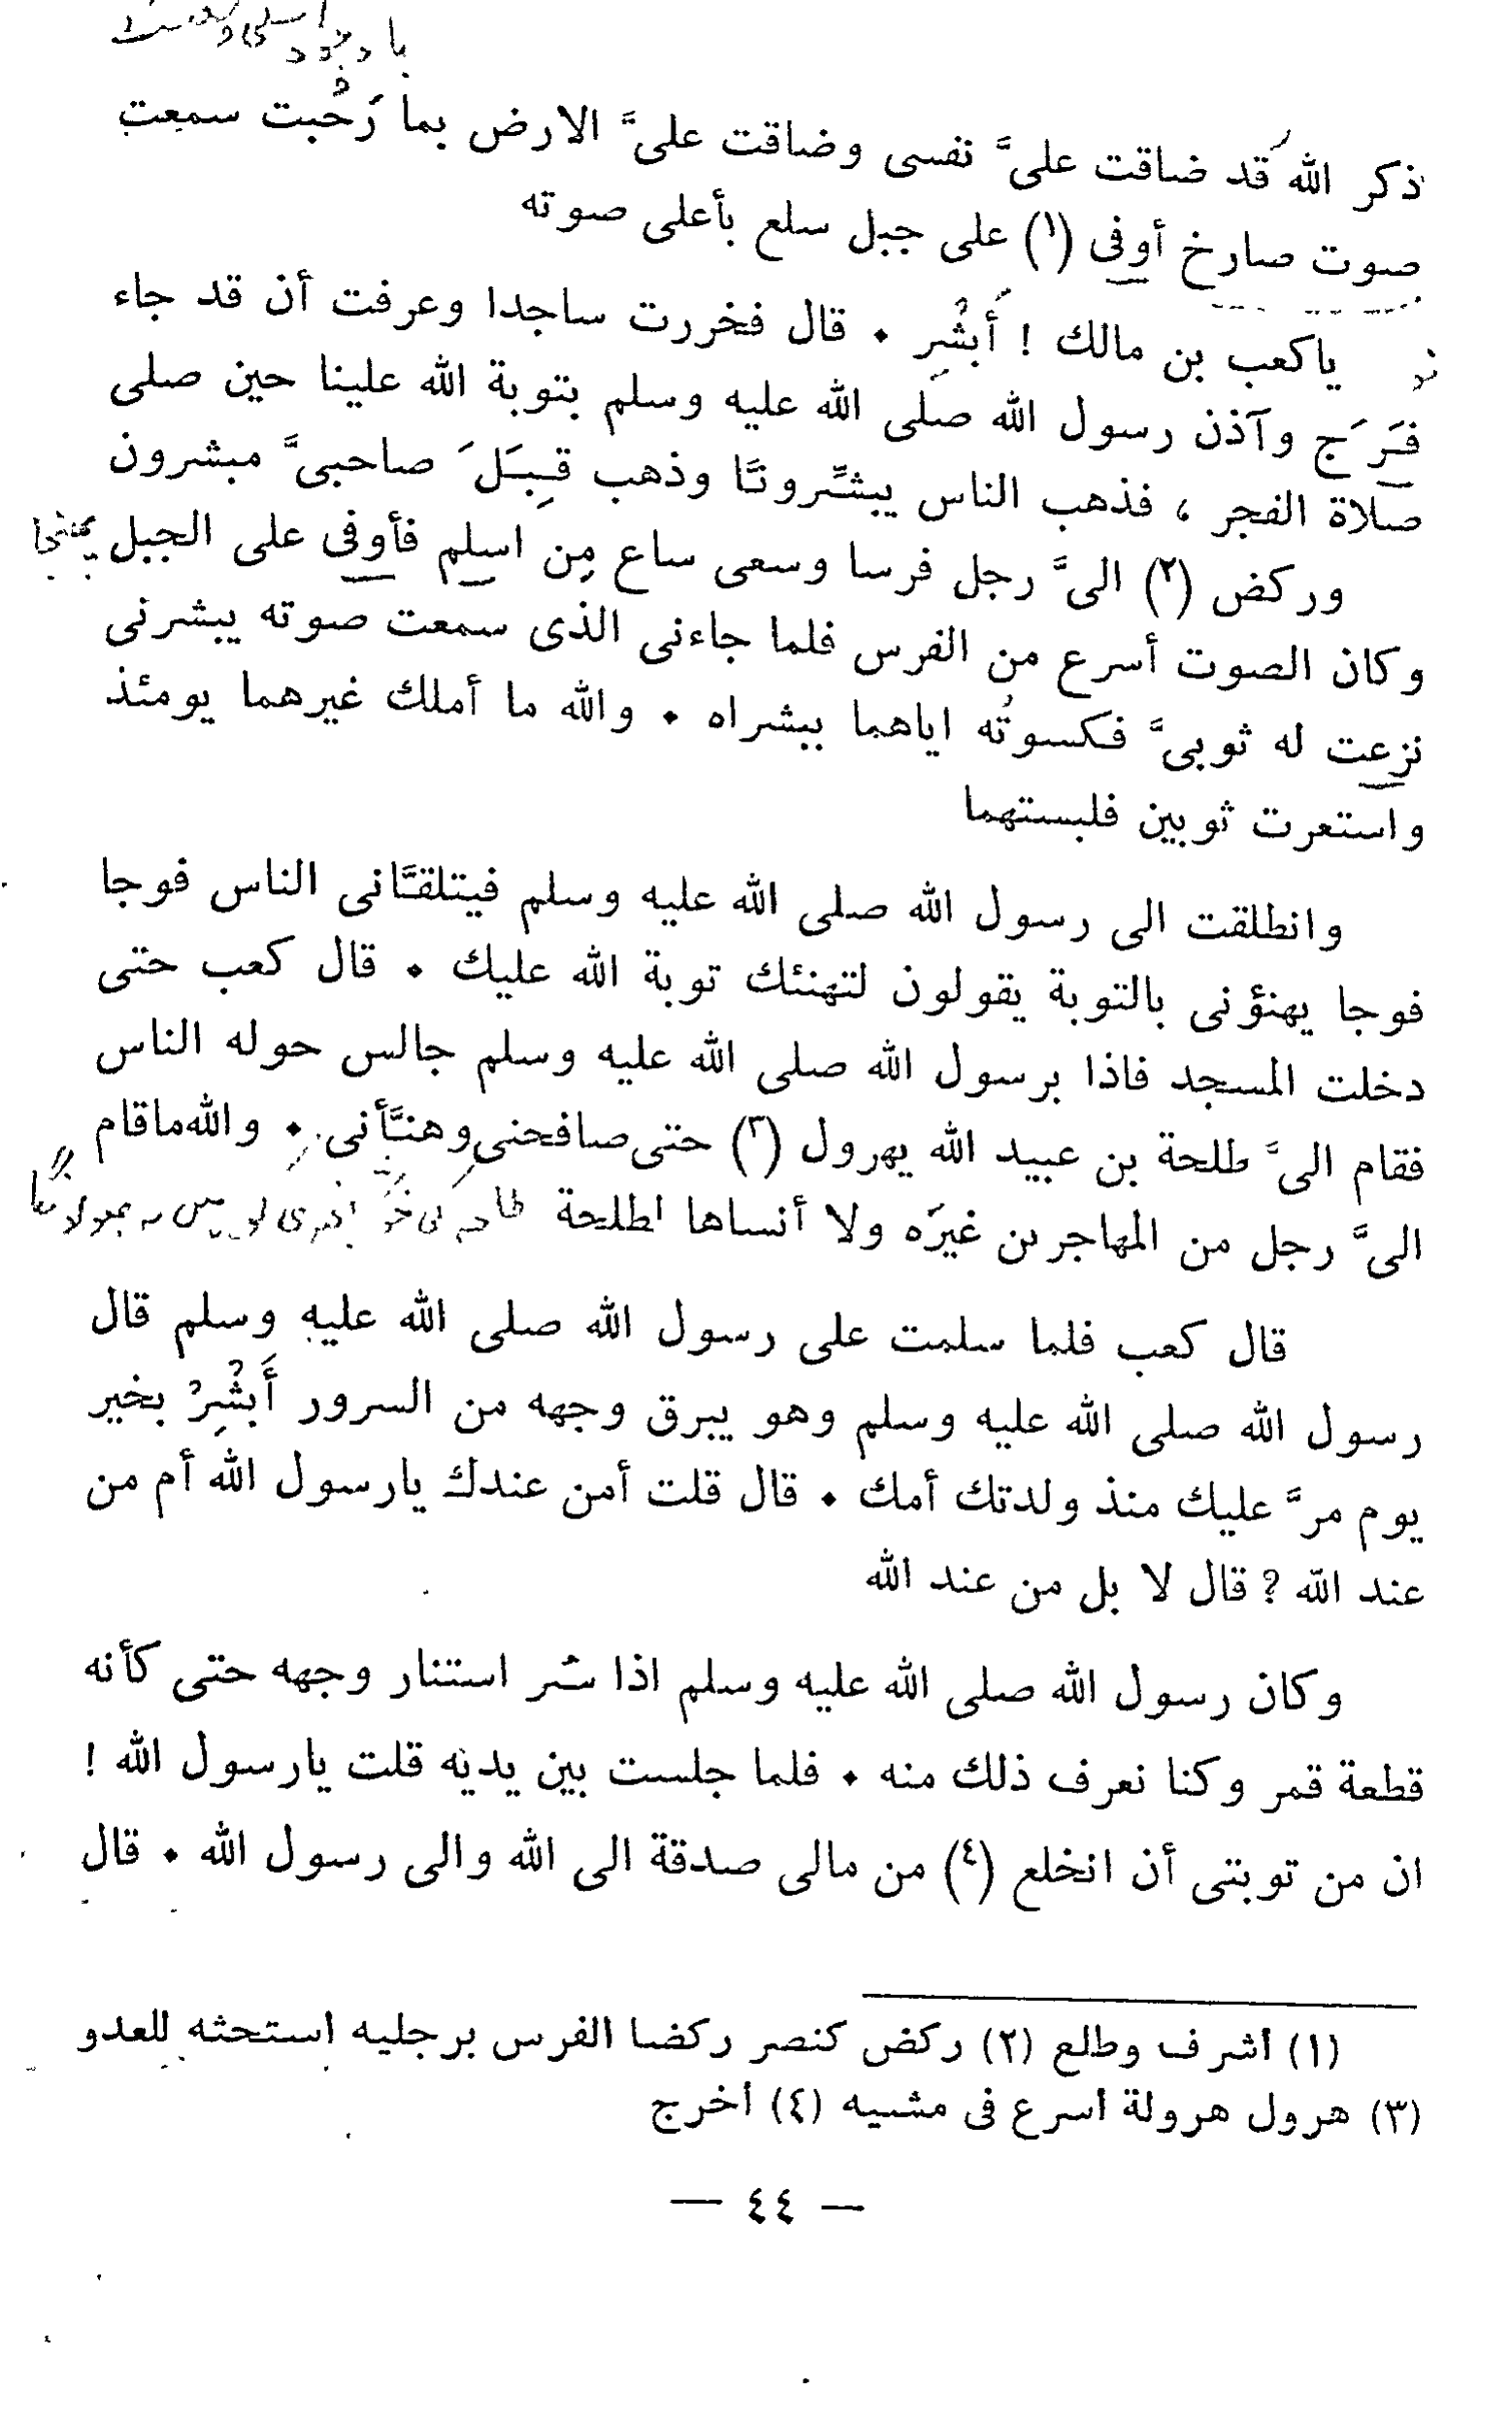 ذكر الله قد ضاقت علىَّ نفسى وضاقت علىَّ الارض بما رَحُبت سمعت
صوت صارخ أوفى (١) على جبل سلع بأعلى صوته
ياكعب بن مالك ! أَبْشِر • قال فخررت ساجدا وعرفت أن قد جاء
فَرَج وآذن رسول الله صلى الله عليه وسلم بتوبة الله علينا حين صلى
صلاة الفجر ، فذهب الناس يبشِّروننا وذهب قِبَلَ صاحبىَّ مبشرون
وركض (٢) الىَّ رجل فرسا وسعى ساع مِن اسلم فأوفى على الجبل
وكان الصوت أسرع من الفرس فلما جاءنى الذى سمعت صوته يبشرنى
نزعت له ثوبىَّ فكسوتُه اياهما ببشراه • والله ما أملك غيرهما يومئذ
واستعرت ثوبين فلبستهما
وانطلقت الى رسول الله صلى الله عليه وسلم فيتلقَّانى الناس فوجا
فوجا يهنؤنى بالتوبة يقولون لتهنئك توبة الله عليك • قال كعب حتى
دخلت المسجد فاذا برسول الله صلى الله عليه وسلم جالس حوله الناس
فقام الىَّ طلحة بن عبيد الله يهرول (٣) حتى صافحنى وهنَّأنى • والله ماقام
الىَّ رجل من المهاجرين غيرَه ولا أنساها لطلحة
قال كعب فلما سلمت على رسول الله صلى الله عليه وسلم قال
رسول الله صلى الله عليه وسلم وهو يبرق وجهه من السرور أَبْشِرْ بخير
يوم مرَّ عليك منذ ولدتك أمك • قال قلت أمن عندك يارسول الله أم من
عند الله ? قال لا بل من عند الله
وكان رسول الله صلى الله عليه وسلم اذا سُر استنار وجهه حتى كأنه
قطعة قمر وكنا نعرف ذلك منه • فلما جلست بين يديه قلت يارسول الله !
ان من توبتى أن انخلع (٤) من مالى صدقة الى الله والى رسول الله • قال
(١) أشرف وطلع (٢) ركض كنصر ركضا الفرس برجليه استحثه للعدو
(٣) هرول هرولة أسرع فى مشيه (٤) أخرج
— ٤٤ —